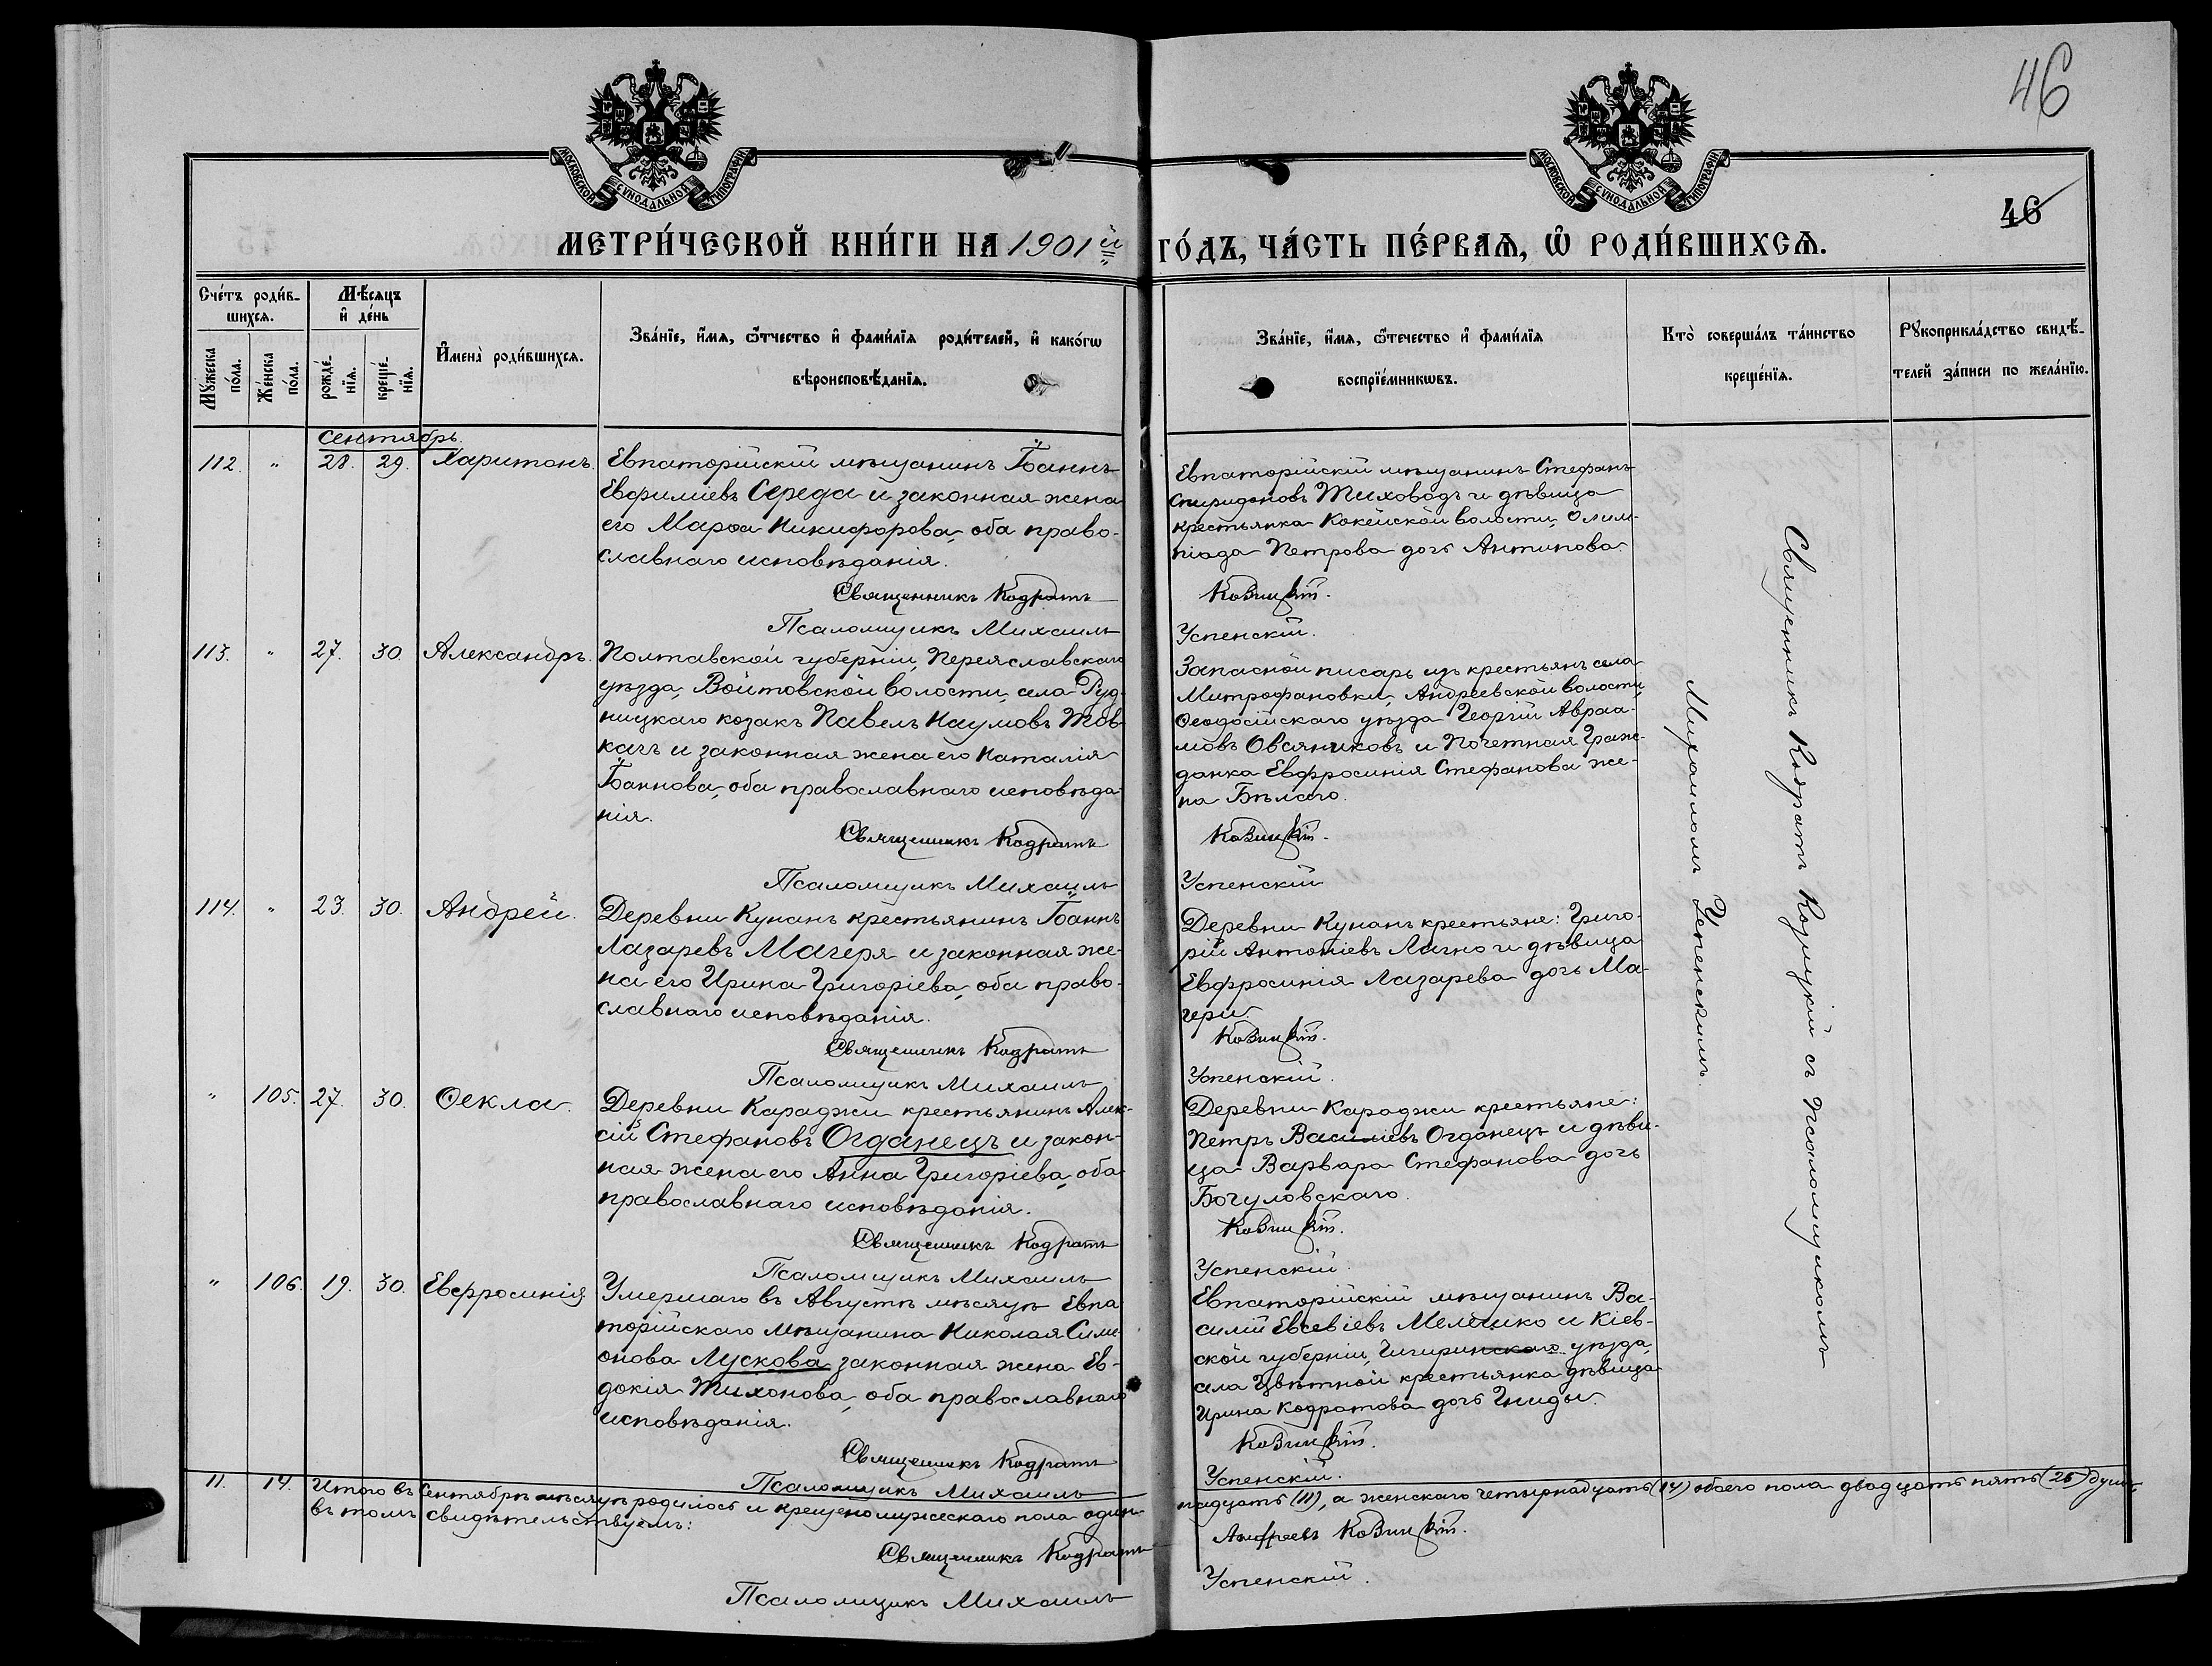 46
МОСКОВСКОЙ СѴНОДАЛЬНОЙ ТИПОГРАФІИ
МОСКОВСКОЙ СѴНОДАЛЬНОЙ ТИПОГРАФІИ
46
МЕТРИ́ЧЕСКОЙ КНИ́ГИ НА 1901й
ГО́ДЪ, ЧА́СТЬ ПЕ́РВАѦ, Ѿ РОДИ́ВШИХСѦ.
Сче́тъ роди́в-
шихсѧ.
Мѣ́сѧцъ
и҆ де́нь
Мꙋ́жеска
по́ла.
Же́нска
по́ла.
рожде́-
нїѧ.
креще́-
нїѧ.
И҆мена̀ роди́вшихсѧ.
Зва́нїе, и҆́мѧ, ѻ҆́тчество и҆ фами́лїѧ роди́телей, и҆ како́гѡ
вѣроисповѣ́данїѧ.
Зва́нїе, и҆́мѧ, ѻ҆́течество и҆ фами́лїѧ
воспрїе́мникѡвъ.
Кто̀ соверша́лъ та́инство
креще́нїѧ.
Рꙋкоприкла́дство свидѣ́-
телей за́писи по жела́нїю.
Сентябрь.
112. " 28. 29. Харитонъ.
Евпаторійскій мѣщанинъ Іоаннъ
Евфиміевъ Середа и законная жена
его Марѳа Никифорова, оба право-
славнаго исповѣданія.
Священникъ Кодратъ
Псаломщикъ Михаилъ
Евпаторійскій мѣщанинъ Стефанъ
Спиридоновъ Тиховодъ и дѣвица
крестьянка Кокейской волости, Олим-
піада Петрова дочь Антипова.
Успенскій.
113. " 27. 30. Александръ.
Полтавской губерніи, Переяславскаго
уѣзда, Войтовской волости, села Руд-
ницкаго козакъ Павелъ Наумовъ Тов-
качъ и законная жена его Наталія
Іоаннова, оба православнаго исповѣда-
нія.
Священникъ Кодратъ
Псаломщикъ Михаилъ
Запасной писарь изъ крестьянъ села
Митрофановки, Андреевской волости
Ѳеодосійскаго уѣзда Георгій Авраа-
мовъ Овсяниковъ и Почетная Граж-
данка Евфросинія Стефанова же-
на Бѣлаго.
Успенскій
114. " 23. 30. Андрей.
Деревни Кунанъ крестьянинъ Іоаннъ
Лазаревъ Магеря и законная же-
на его Ирина Григоріева, оба право-
славнаго исповѣданія.
Священникъ Кодратъ
Псаломщикъ Михаилъ
Деревни Кунанъ крестьяне: Григо-
рій Антоніевъ Лачно и дѣвица
Евфросинія Лазарева дочь Ма-
гери.
Успенскій.
" 105. 27. 30. Ѳекла.
Деревни Караджи крестьянинъ Алек-
сій Стефановъ Огданецъ и закон-
ная жена его Анна Григоріева, оба
православнаго исповѣданія.
Священникъ Кодратъ
Псаломщикъ Михаилъ
Деревни Караджи крестьяне:
Петръ Василіевъ Огданецъ и дѣви-
ца Варвара Стефанова дочь
Богуловскаго.
Успенскій.
" 106. 19. 30. Евфросинія
Умершаго въ Августѣ мѣсяцѣ Евпа-
торійскаго мѣщанина Николая Симе-
онова Лускова законная жена Ев-
докія Тихонова, оба православнаго
исповѣданія.
Священникъ Кодратъ
Псаломщикъ Михаилъ
Евпаторійскій мѣщанинъ Ва-
силій Евсевіевъ Мелешко и Кіев-
ской губерніи, Чигиринскаго уѣзда,
села Цвѣтной крестьянка дѣвица
Ирина Кодратова дочь Гниды.
Успенскій.
Священникъ Кодратъ съ псаломщикомъ
Михаиломъ Успенскимъ.
11. 14. Итого въ Сентябрѣ мѣсяцѣ родилось и крещено мужескаго пола один-
надцать (11), а женскаго четырнадцать (14) обоего пола двадцать пять (25) душъ,
въ томъ свидѣтельствуемъ:
Священникъ Кодратъ
Андреевъ
Псаломщикъ Михаилъ
Успенскій.